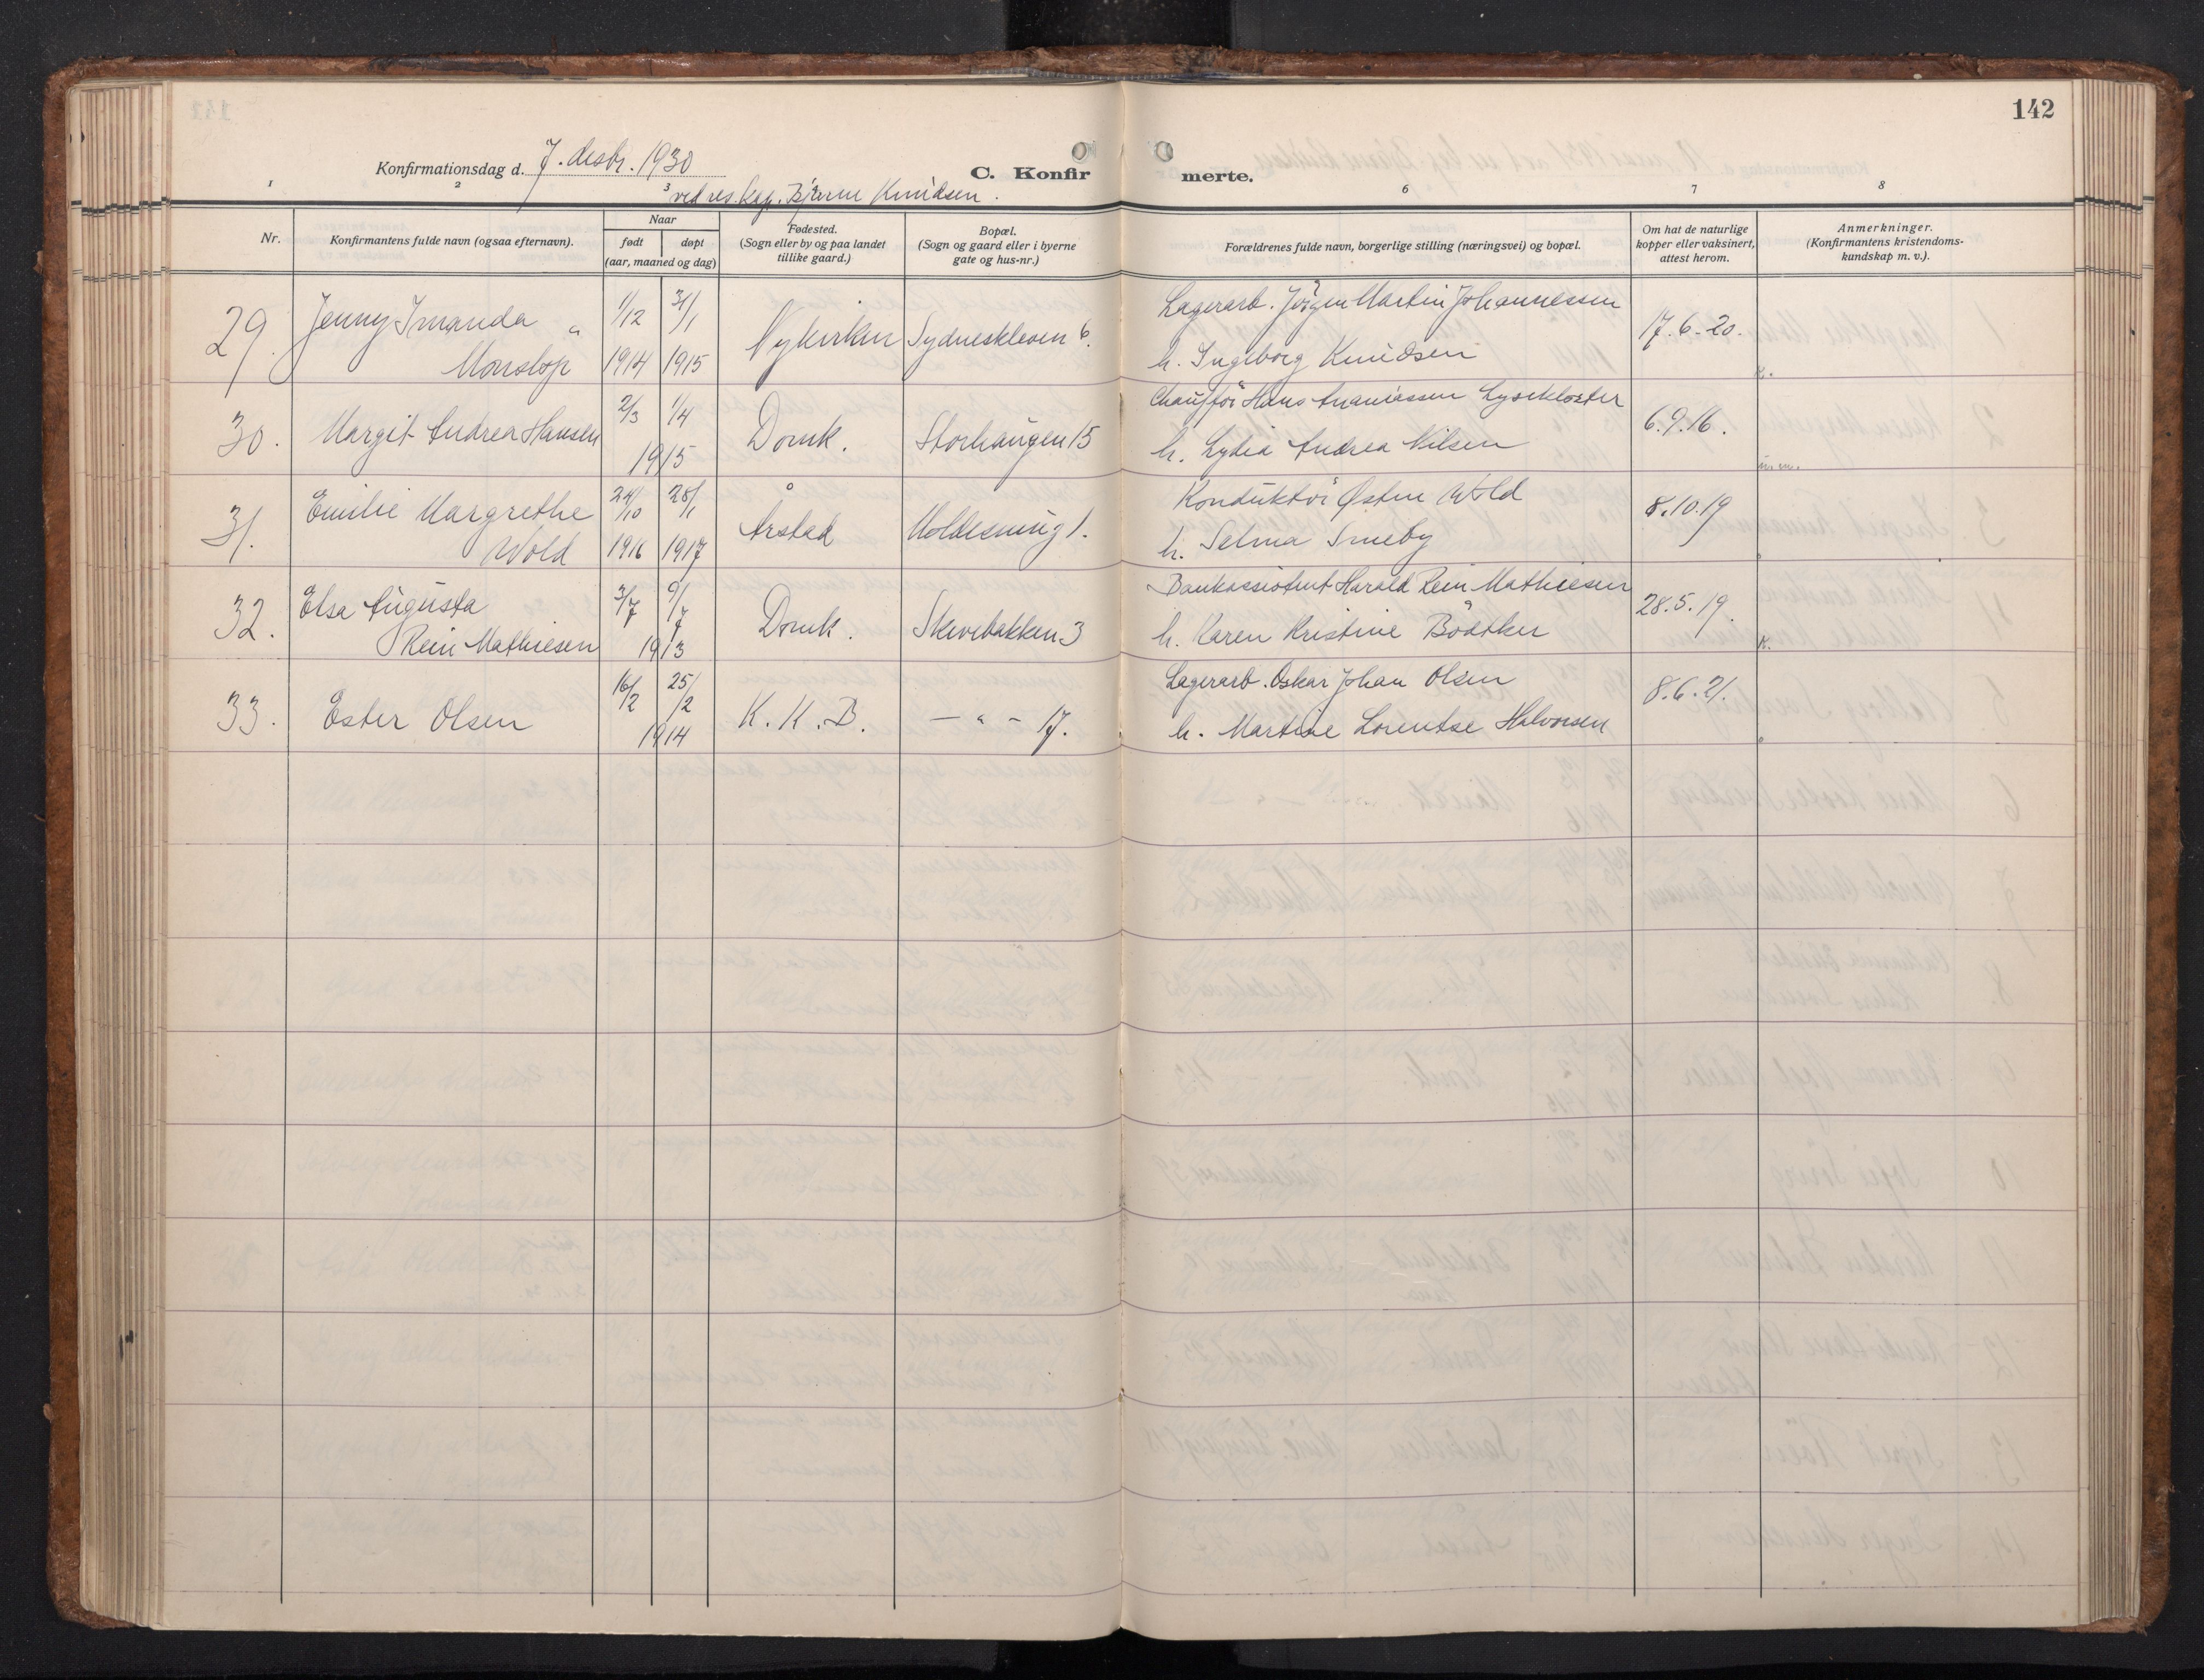 142
Konfirmationsdag d. 7. desbr. 1930
ved res. kap. Bjarne Knudsen.
C. Konfirmerte.
1 2 3 6 7 8
Nr.
Konfirmantens fulde navn (ogsaa efternavn).
Naar
født døpt
(aar, maaned og dag)
Fødested.
(Sogn eller by og paa landet
tillike gaard.)
Bopæl.
(Sogn og gaard eller i byerne
gate og hus-nr.)
Forældrenes fulde navn, borgerlige stilling (næringsvei) og bopæl.
Om hat de naturlige
kopper eller vaksinert,
attest herom.
Anmerkninger.
(Konfirmantens kristendoms-
kundskap m. v.).
29. Jenny Imanda 1/12 31/1 Nykirken Sydneskleven 6. Lagerarb. Jörgen Martin Johannessen 17.6.20.
Monslop 1914 1915 h. Ingeborg Knudsen
30. Margit Andrea Hansen 2/3 1/4 Domk. Storhaugen 15 Chaufför Hans Ananiassen Lysekloster 6.9.16.
1915 h. Lydia Andrea Nilsen
31. Emilie Margrethe 24/10 28/1 Årstad Moldesmug 1. Konduktör Østen Wold 8.10.19
Wold 1916 1917 h. Selma Smeby
32. Elsa Augusta 3/7 9/7 Domk. Skivebakken 3 Bankassistent Harald Rein Mathiesen 28.5.19.
Rein Mathiesen 1913 h. Karen Kristine Bödtker K.
33. Ester Olsen 16/2 25/2 K. K. B. — " — 17. Lagerarb. Oskar Johan Olsen 8.6.21.
1914 h. Martine Lorentse Halvorsen